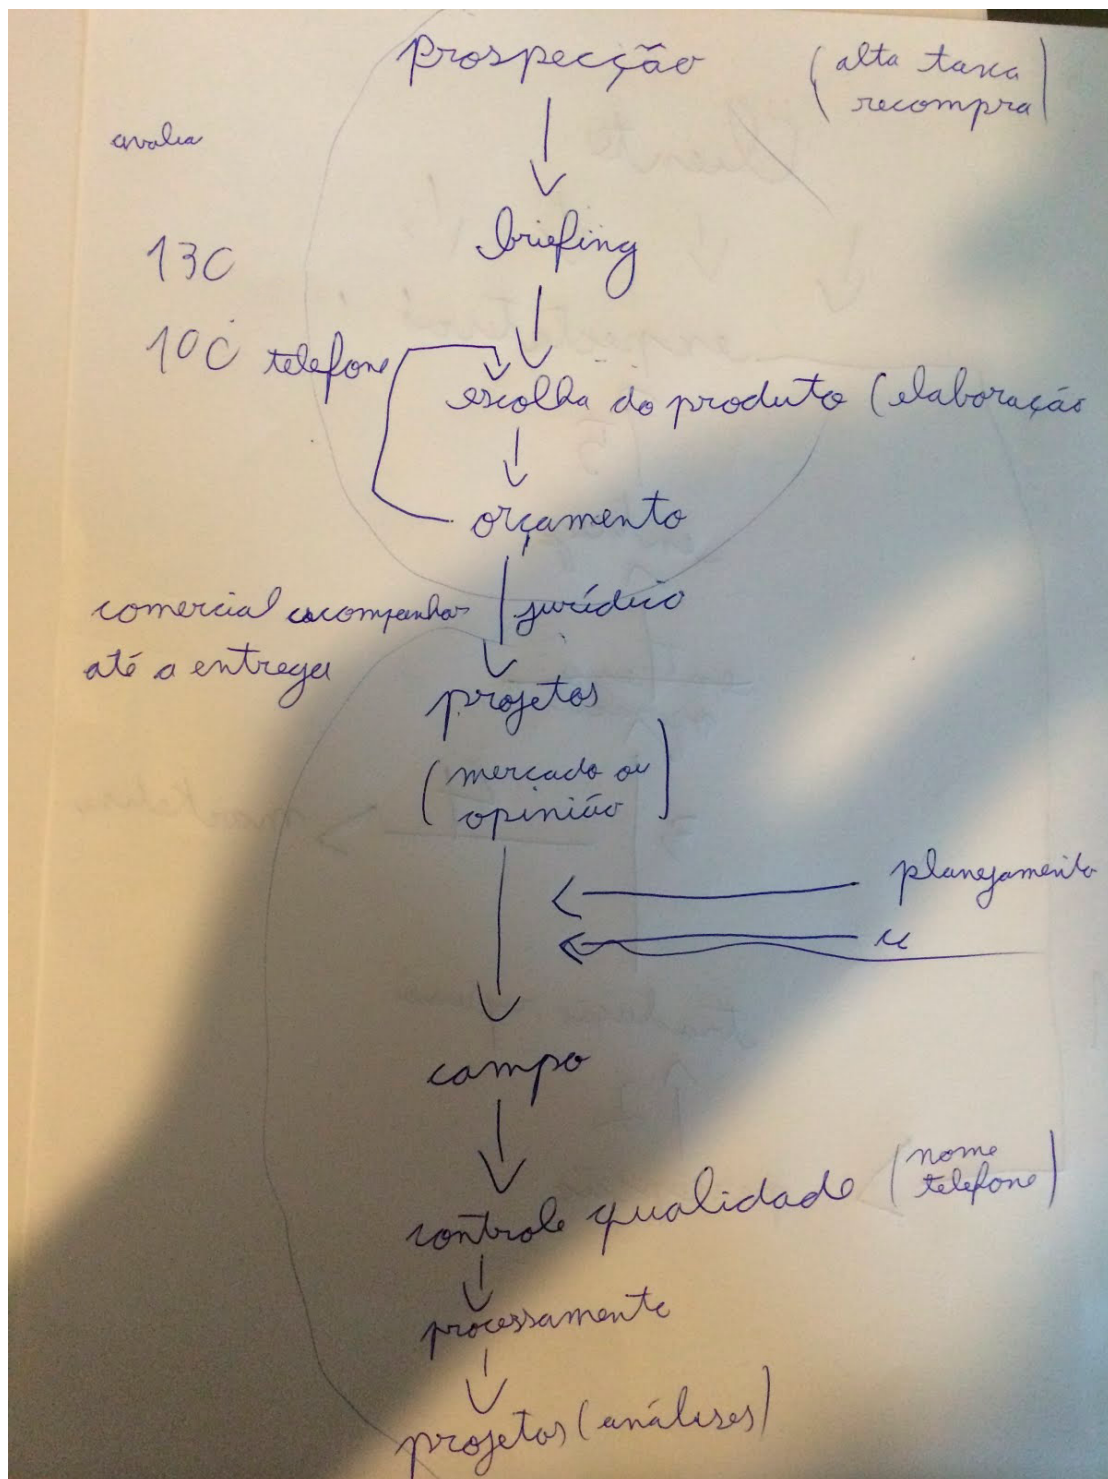 prospecção
(alta taxa
recompra)
avalia
briefing
13C
10C telefone
escolha do produto (elaboração
orçamento
comercial acompanhar
até a entrega
jurídico
projetos
(mercado ou
opinião)
planejamento
campo
controle qualidade (nome
telefone)
processamento
projetos (análises)